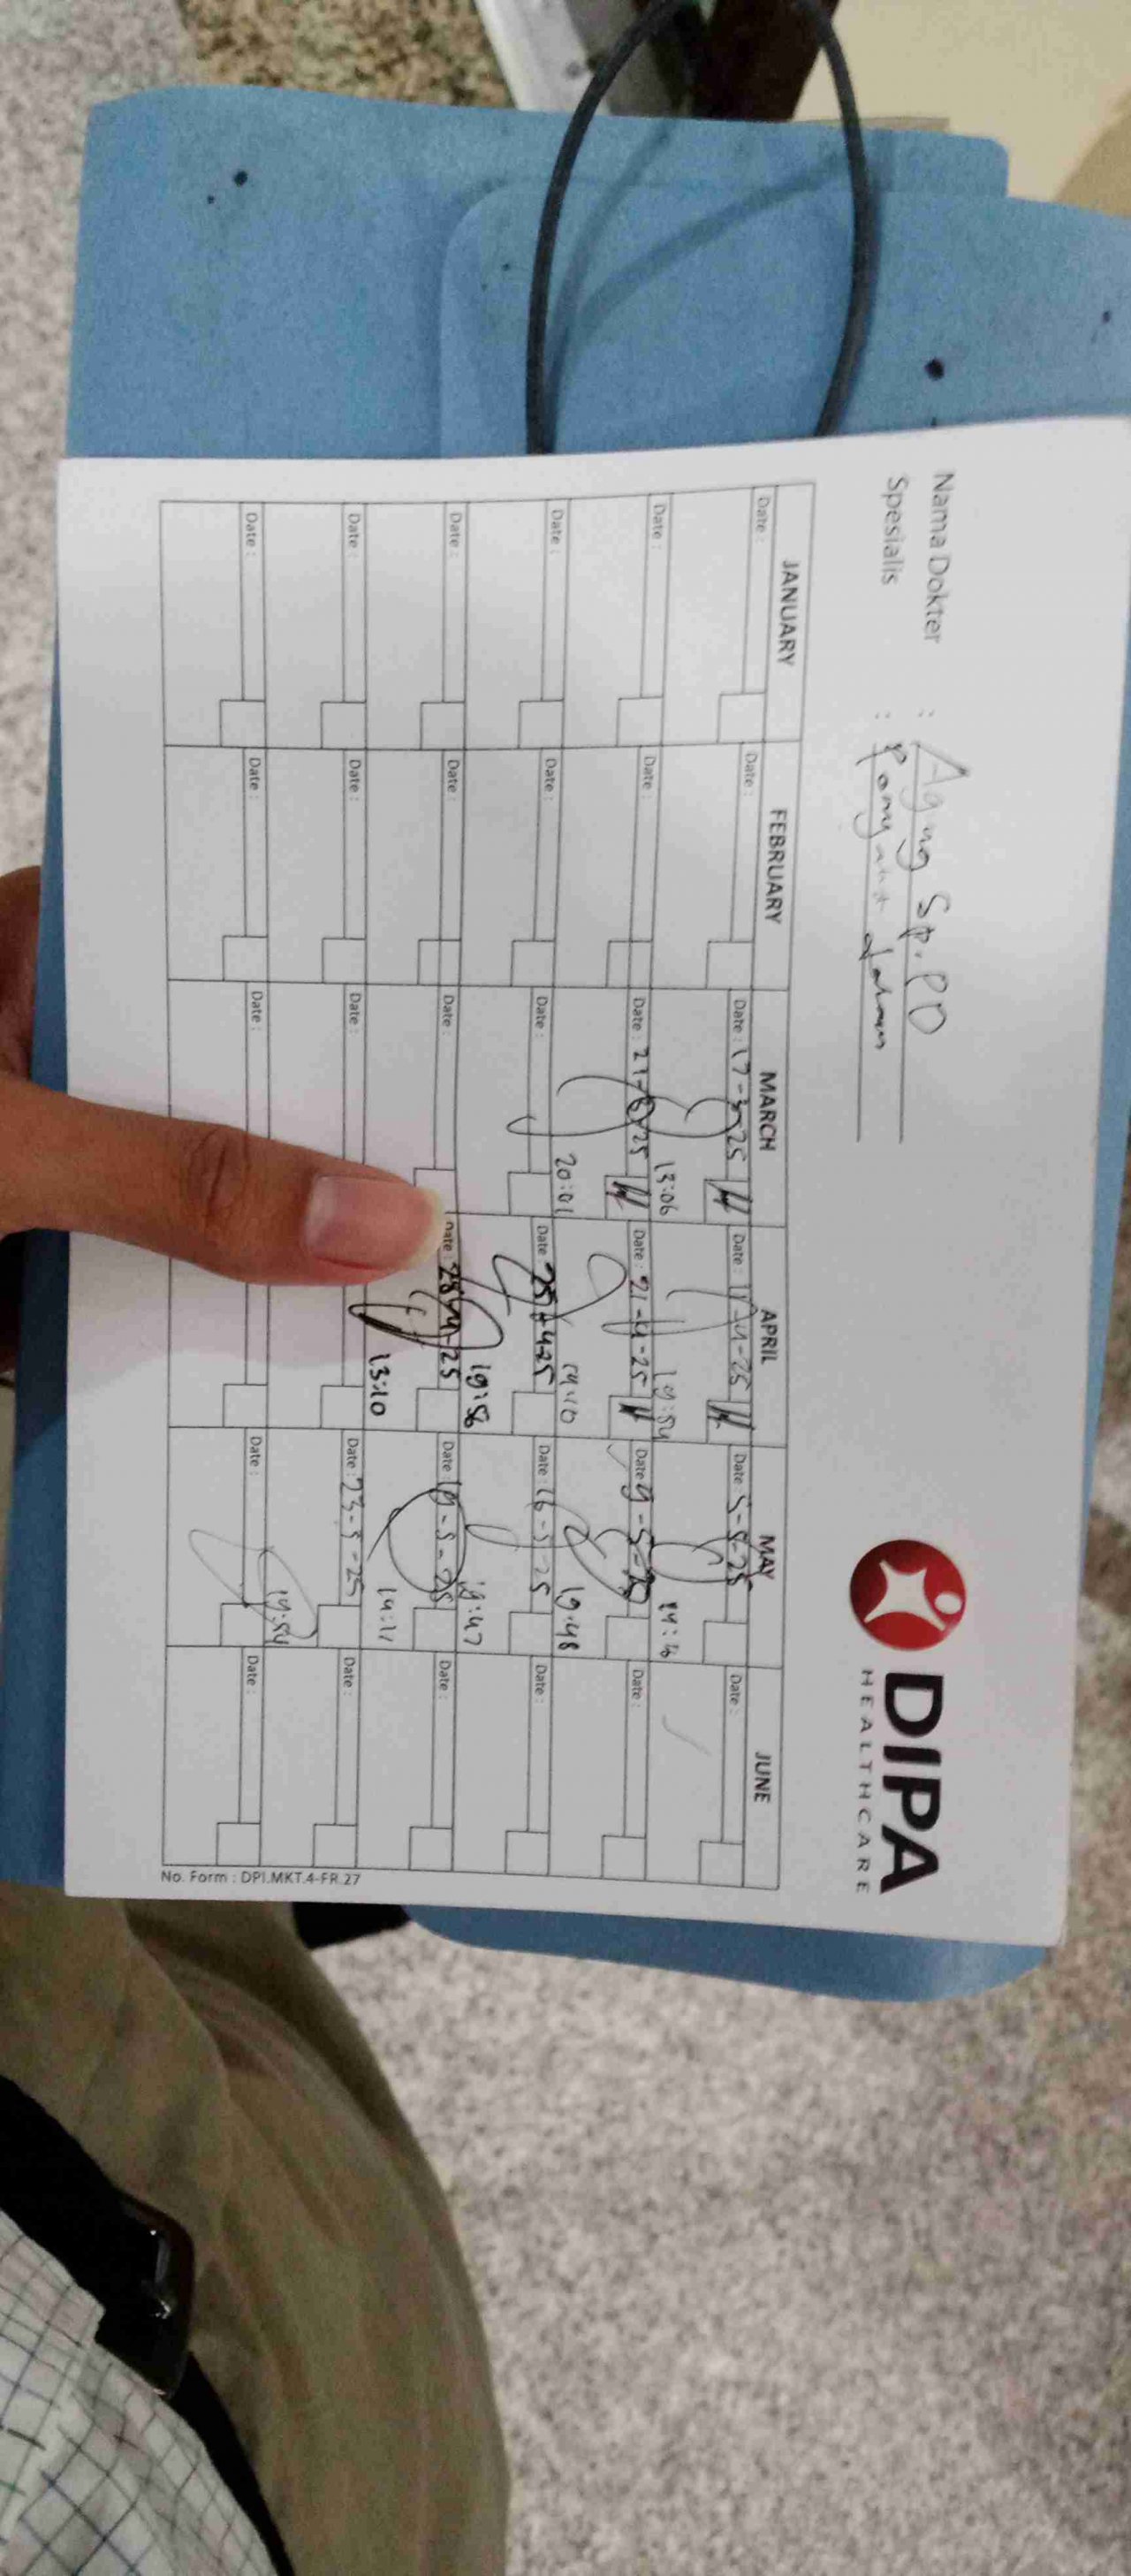 DIPA
HEALTHCARE
Nama Dokter : Agung Sp.PD
Spesialis : Penyakit dalam
JANUARY FEBRUARY MARCH APRIL MAY JUNE
Date : Date : Date : 17-3-25 Date : 11-4-25 Date : 5-5-25 Date :
13:06 19:54 14:16
Date : Date : Date : 21-3-25 Date : 21-4-25 Date : 9-5-25 Date :
20:01 14:10 19:48
Date : Date : Date : Date : 25-4-25 Date : 16-5-25 Date :
19:56 19:47
Date : Date : Date : Date : 28-4-25 Date : 19-5-25 Date :
13:10 14:11
Date : Date : Date : Date : 23-5-25 Date :
19:54
Date : Date : Date : Date : Date :
No. Form : DPI.MKT.4-FR.27